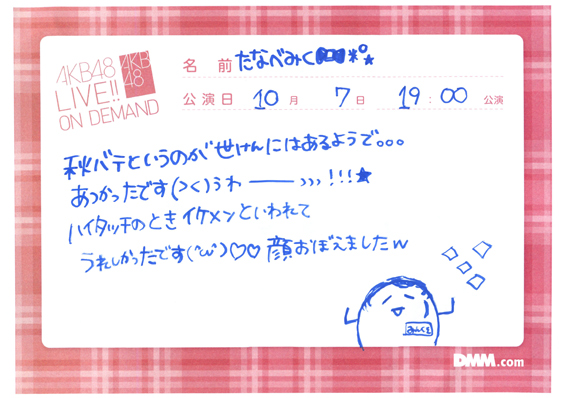 AKB48
LIVE!!
ON DEMAND
AKB
48
名 前 たなべみく
公演日 10 月 7 日 19 : 00 公演
秋バテというのが世けんにはあるようで。。。
あつかったです(>く)うわーーー>>>!!!★
ハイタッチのときイケメンといわれて
うれしかったです(^ω^)♡♡顔おぼえましたw
みんくる
DMM.com